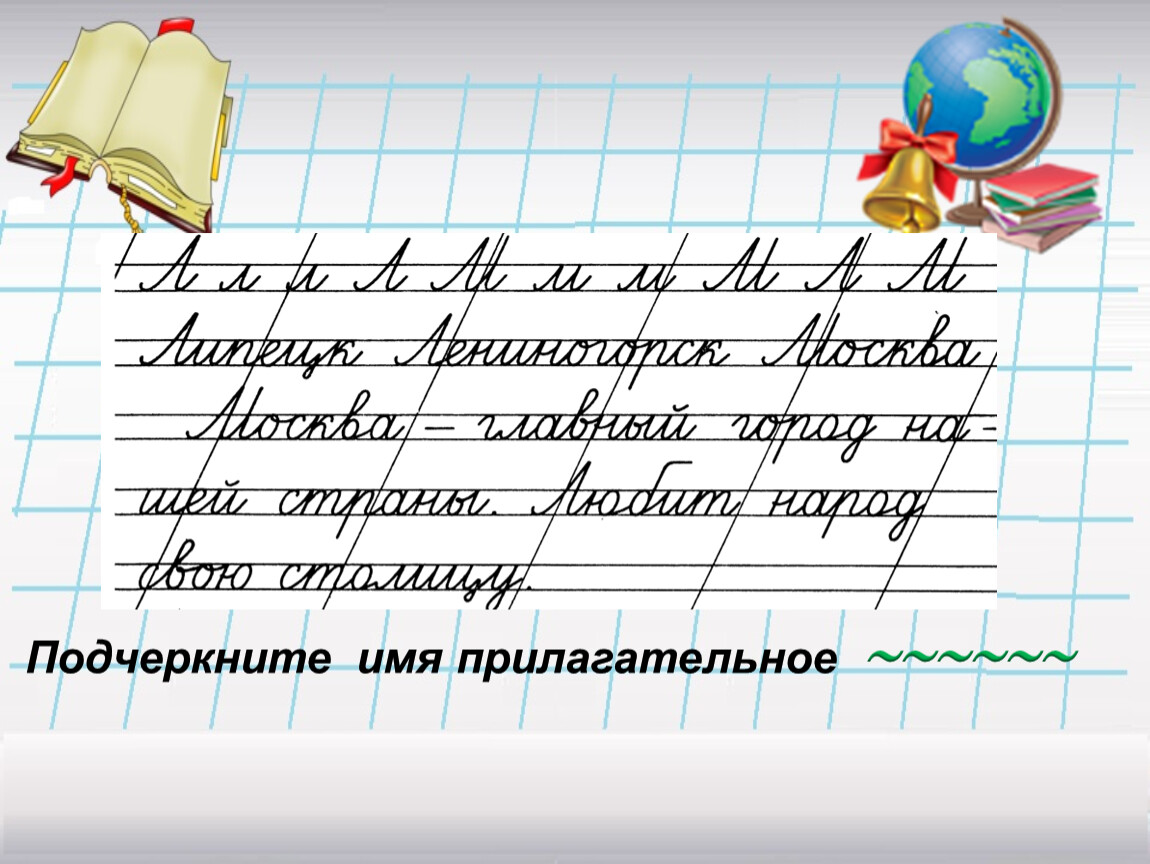 Л л л Л М м м М Л М
Липецк Лениногорск Москва
Москва – главный город на-
шей страны. Любит народ
свою столицу.
Подчеркните имя прилагательное ~~~~~~